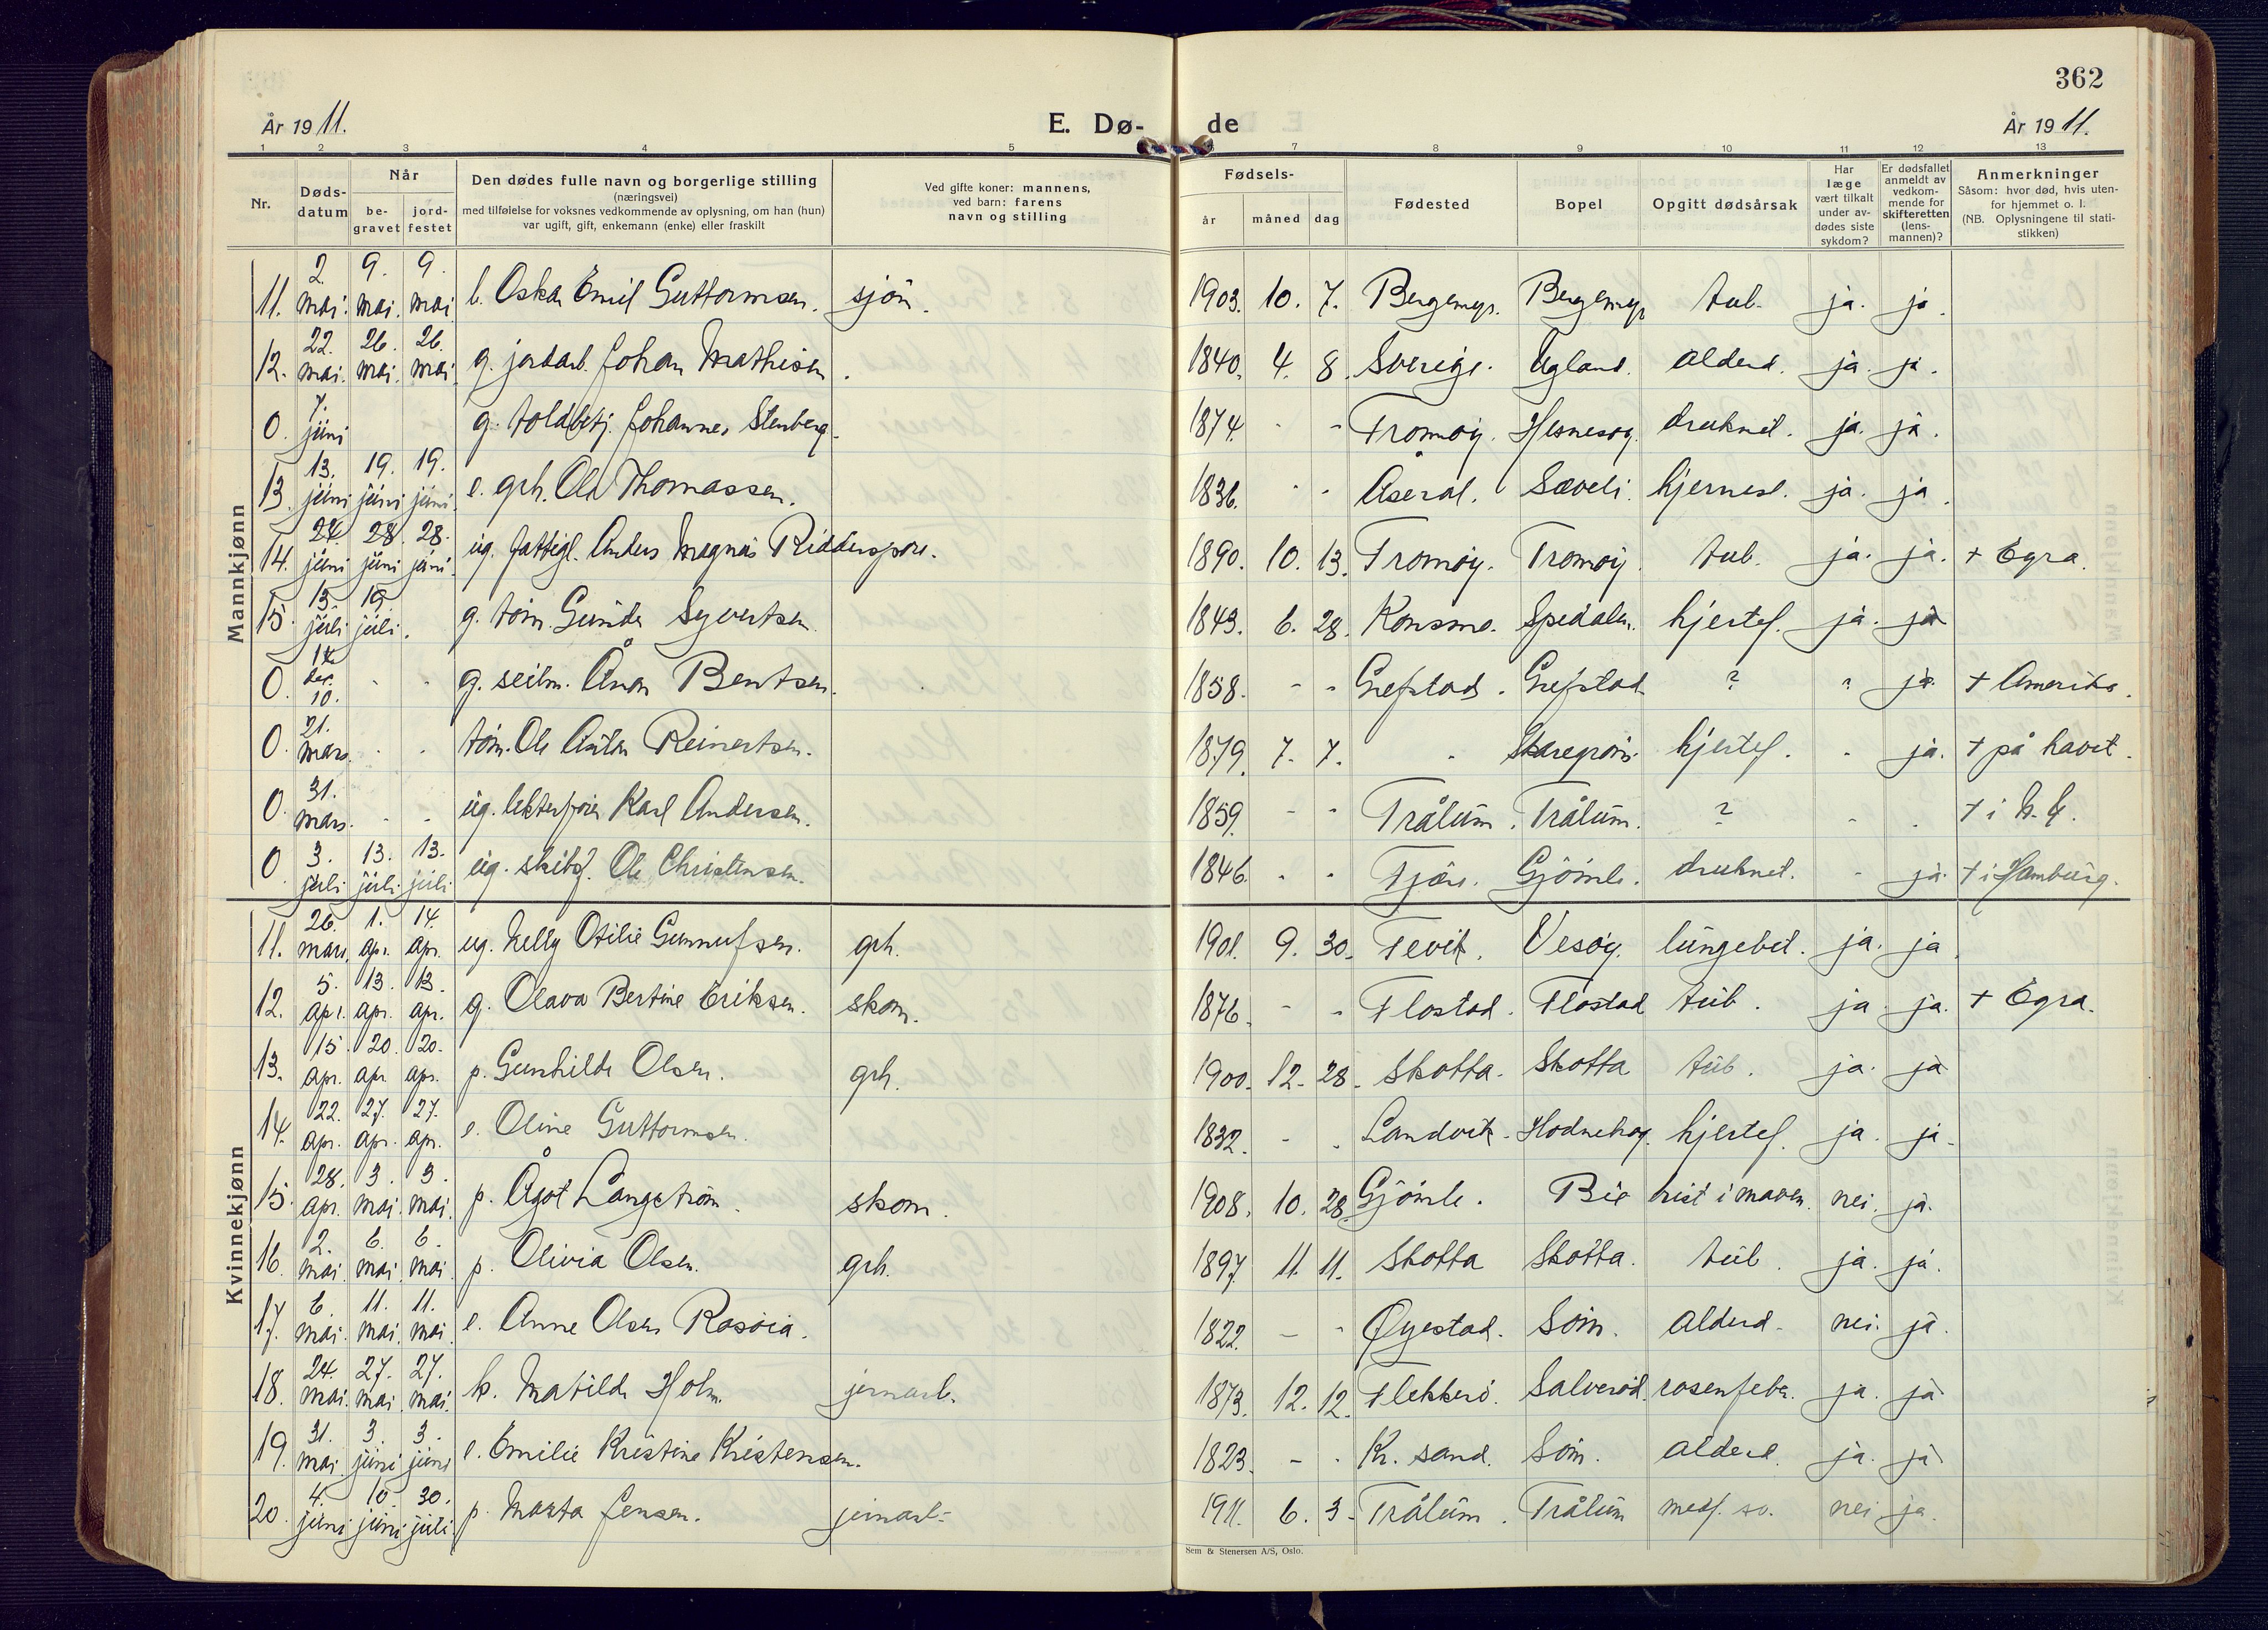 362
År 1911.
E. Dø-
de
År 1911.
1 2 3 4 5 6 7 8 9 10 11 12 13
Nr.
Døds-
datum
Når
be-
gravet
jord-
festet
Den dødes fulle navn og borgerlige stilling
(næringsvei)
med tilføielse for voksnes vedkommende av oplysning, om han (hun)
var ugift, gift, enkemann (enke) eller fraskilt
Ved gifte koner: mannens,
ved barn: farens
navn og stilling
Fødsels-
år måned dag
Fødested
Bopel
Opgitt dødsårsak
Har
læge
vært tilkalt
under av-
dødes siste
sykdom?
Er dødsfallet
anmeldt av
vedkom-
mende for
skifteretten
(lens-
mannen)?
Anmerkninger
Såsom: hvor død, hvis uten-
for hjemmet o. l.
(NB. Oplysningene til stati-
stikken)
Mannkjønn
11. 2. mai. 9. mai. 9. mai. Oskar Emil Guttormsen. sjöm. 1903. 10. 7. Bergemyr. Bergemyr tub. ja. ja.
12. 22. mai. 26. mai. 26. mai. g. jordarb. Johan Mathisen. 1840. 4. 8. Sverige. Ugland. alderd. ja. ja.
0. 7. juni g. toldbetj. Johannes Stenberg. 1874. - - Tromöy. Hesnesöy. druknet. ja. ja.
13. 13. juni 19. juni 19. juni. e. grh. Ole Thomassen. 1836. - - Åseral. Sæveli. hjernesl. ja. ja.
14. 24. juni 28. juni 28. juni. ug. fattigl. Anders Magnus Ridderspore. 1890. 10. 13. Tromöy. Tromöy. tub. ja. ja. + Egra.
15. 13. juli 19. juli. g. töm. Gunder Syvertsen. 1843. 6. 28. Konsmo. Spedalen. hjertef. ja. ja
0. 14. des. 10. - - g. seilm. Ånon Bentsen. 1858. - - Grefstad. Grefstad ? " ja. + Amerika.
0. 21. mars. - - töm. Ole Anton Reinertsen. 1879. 7. 7. - hjertef. - ja. + på havet.
0. 31. mars. - - ug. Karl Andersen. 1859. - - Trålum. Trålum. ? - - + i
0. 3. juli 13. juli 13. juli ug. Ole Christensen. 1846. - - Fjære. Gjömle. druknet. - ja. + i Hamburg.
Kvinnekjønn
11. 26. mars. 1. apr. 14. apr. ug. Nelly Otilie Gunnufsen. grh. 1901. 9. 30. Fevik. Vesöy. lungebet. ja. ja.
12. 5. apr. 13. apr. 13. apr. g. Olava Bertine Eriksen. skom. 1876. - - Flostad. Flostad tub. ja ja. + Egra.
13. 15. apr. 20. apr 20. apr. p. Gunhilde Olsen. grh. 1900. 12. 28. Skotta. Skotta tub. ja. ja
14. 22. apr. 27. apr. 27. apr. e. Oline Guttormsen. 1832. - - Landvik. hjertef. ja. ja.
15. 28. apr. 3. mai. 3. mai. p. Ågot Långström. skom. 1908. 10. 28. Gjömle. Bie i maven. nei. ja.
16. 2. mai. 6. mai. 6. mai. p. Olivia Olsen. grh. 1897. 11. 11. Skotta Skotta. tub. ja. ja.
17. 6. mai. 11. mai. 11. mai. e. Anne Olsen Rosöia. 1822. - - Øyestad. Söm. alderd. nei. ja.
18. 24. mai. 27. mai. 27. mai. k. Matilde Holm. jernarb. 1873. 12. 12. Flekkerö. Salveröd. rosenfeber. ja. ja
19. 31. mai. 3. juni 3. juni e. Emilie Kristine Kristensen. 1823. - - Kr. sand. Söm. alderd. ja. ja
20. 4. juni 10. juni 30. juli p. Marta Jensen. jernarb. 1911. 6. 3. Trålum. Trålum medf. sv. nei ja.
Sem & Stenersen A/S, Oslo.